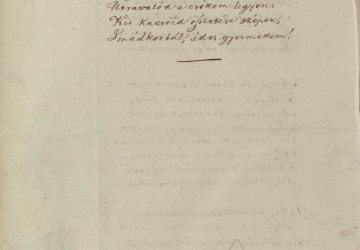 Útravalód e csókom legyen;
Kis kacsóid összetéve szépen,
Imádkoztál, édes gyermekem!